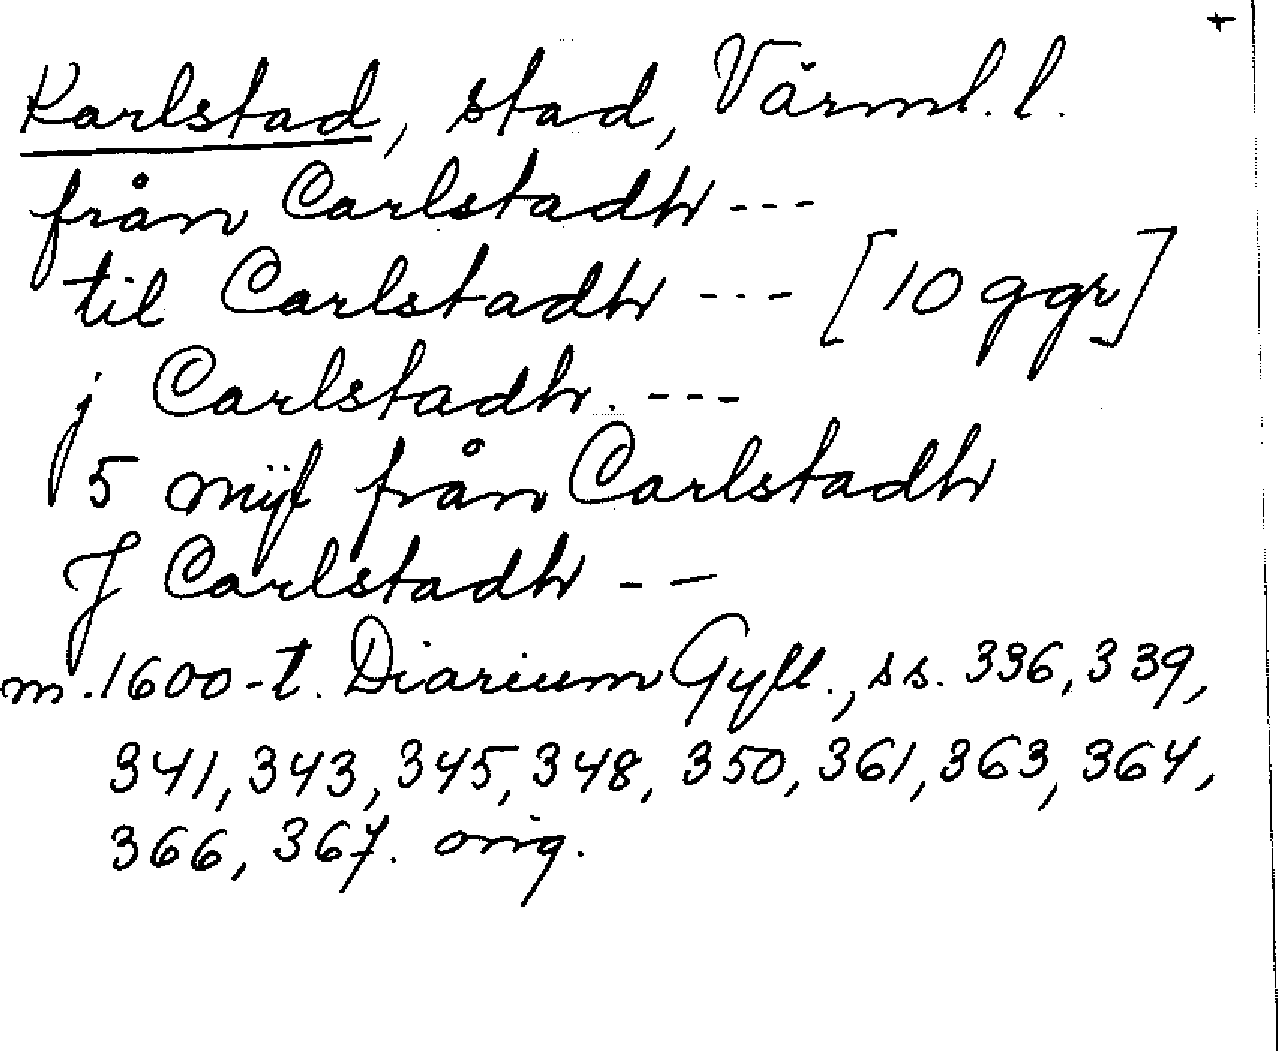 +
Karlstad, stad, Värml. l.
från Carlstadh ---
til Carlstadh --- [10 ggr]
j Carlstadh. ---
5 mijl från Carlstadh
J Carlstadh --
m. 1600-t. Diarium Gyll., ss. 336, 339,
341, 343, 345, 348, 350, 361, 363, 364,
366, 367. orig.